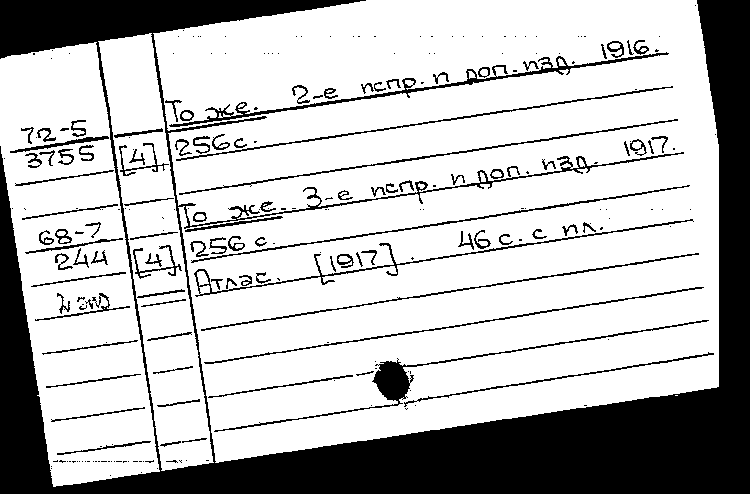 То же. 2-е испр. и доп. изд. 1916.
72-5
3755 [4], 256 с.
То же. 3-е испр. и доп. изд. 1917.
68-7
244 [4], 256 с.
Атлас. [1917]. 46 с. с ил.
2 экз